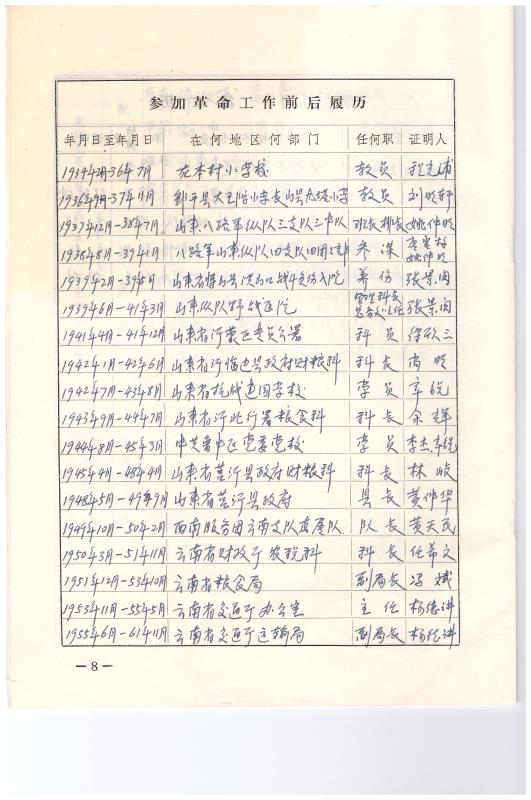 参加革命工作前后履历
年月日至年月日 在何地区何部门 任何职 证明人
1934年2月-36年7月 在本村小学校 教员
1936年9月-37年11月 邹平县 小学长山县 小学 教员 刘明轩
1937年12月-38年7月 山东八路军纵队三支队三中队 班长排长 姚仲明
1938年8月-39年1月 八路军山东纵队四支队四团 参谋 姚仲明
1939年2月-39年5月 山东省 养伤 张景南
1939年6月-41年3月 山东纵队野战医院 管理科长 主任 张景南
1941年4月-41年12月 山东省沂蒙区专员公署 科员 徐 三
1942年1月-42年6月 山东省沂临边县政府财粮科 科长 高明
1942年7月-43年8月 山东省抗战建国学校 学员 辛锐
1943年9月-44年7月 山东省河北行署粮食科 科长 余辉
1944年8月-45年3月 中共鲁中区党委党校 学员 李杰辛锐
1945年4月-48年4月 山东省莒沂县政府财粮科 科长 林
1948年5月-49年9月 山东省莒沂县政府 县长 黄伟华
1949年10月-50年2月 西南服务团云南支队 队 队长 黄天民
1950年3月-51年11月 云南省财政厅农税科 科长 任希文
1951年12月-53年10月 云南省粮食局 副局长 冯斌
1953年11月-55年5月 云南省交通厅办公室 主任 杨德洪
1955年6月-61年11月 云南省交通厅运输局 副局长 杨德洪
—8—